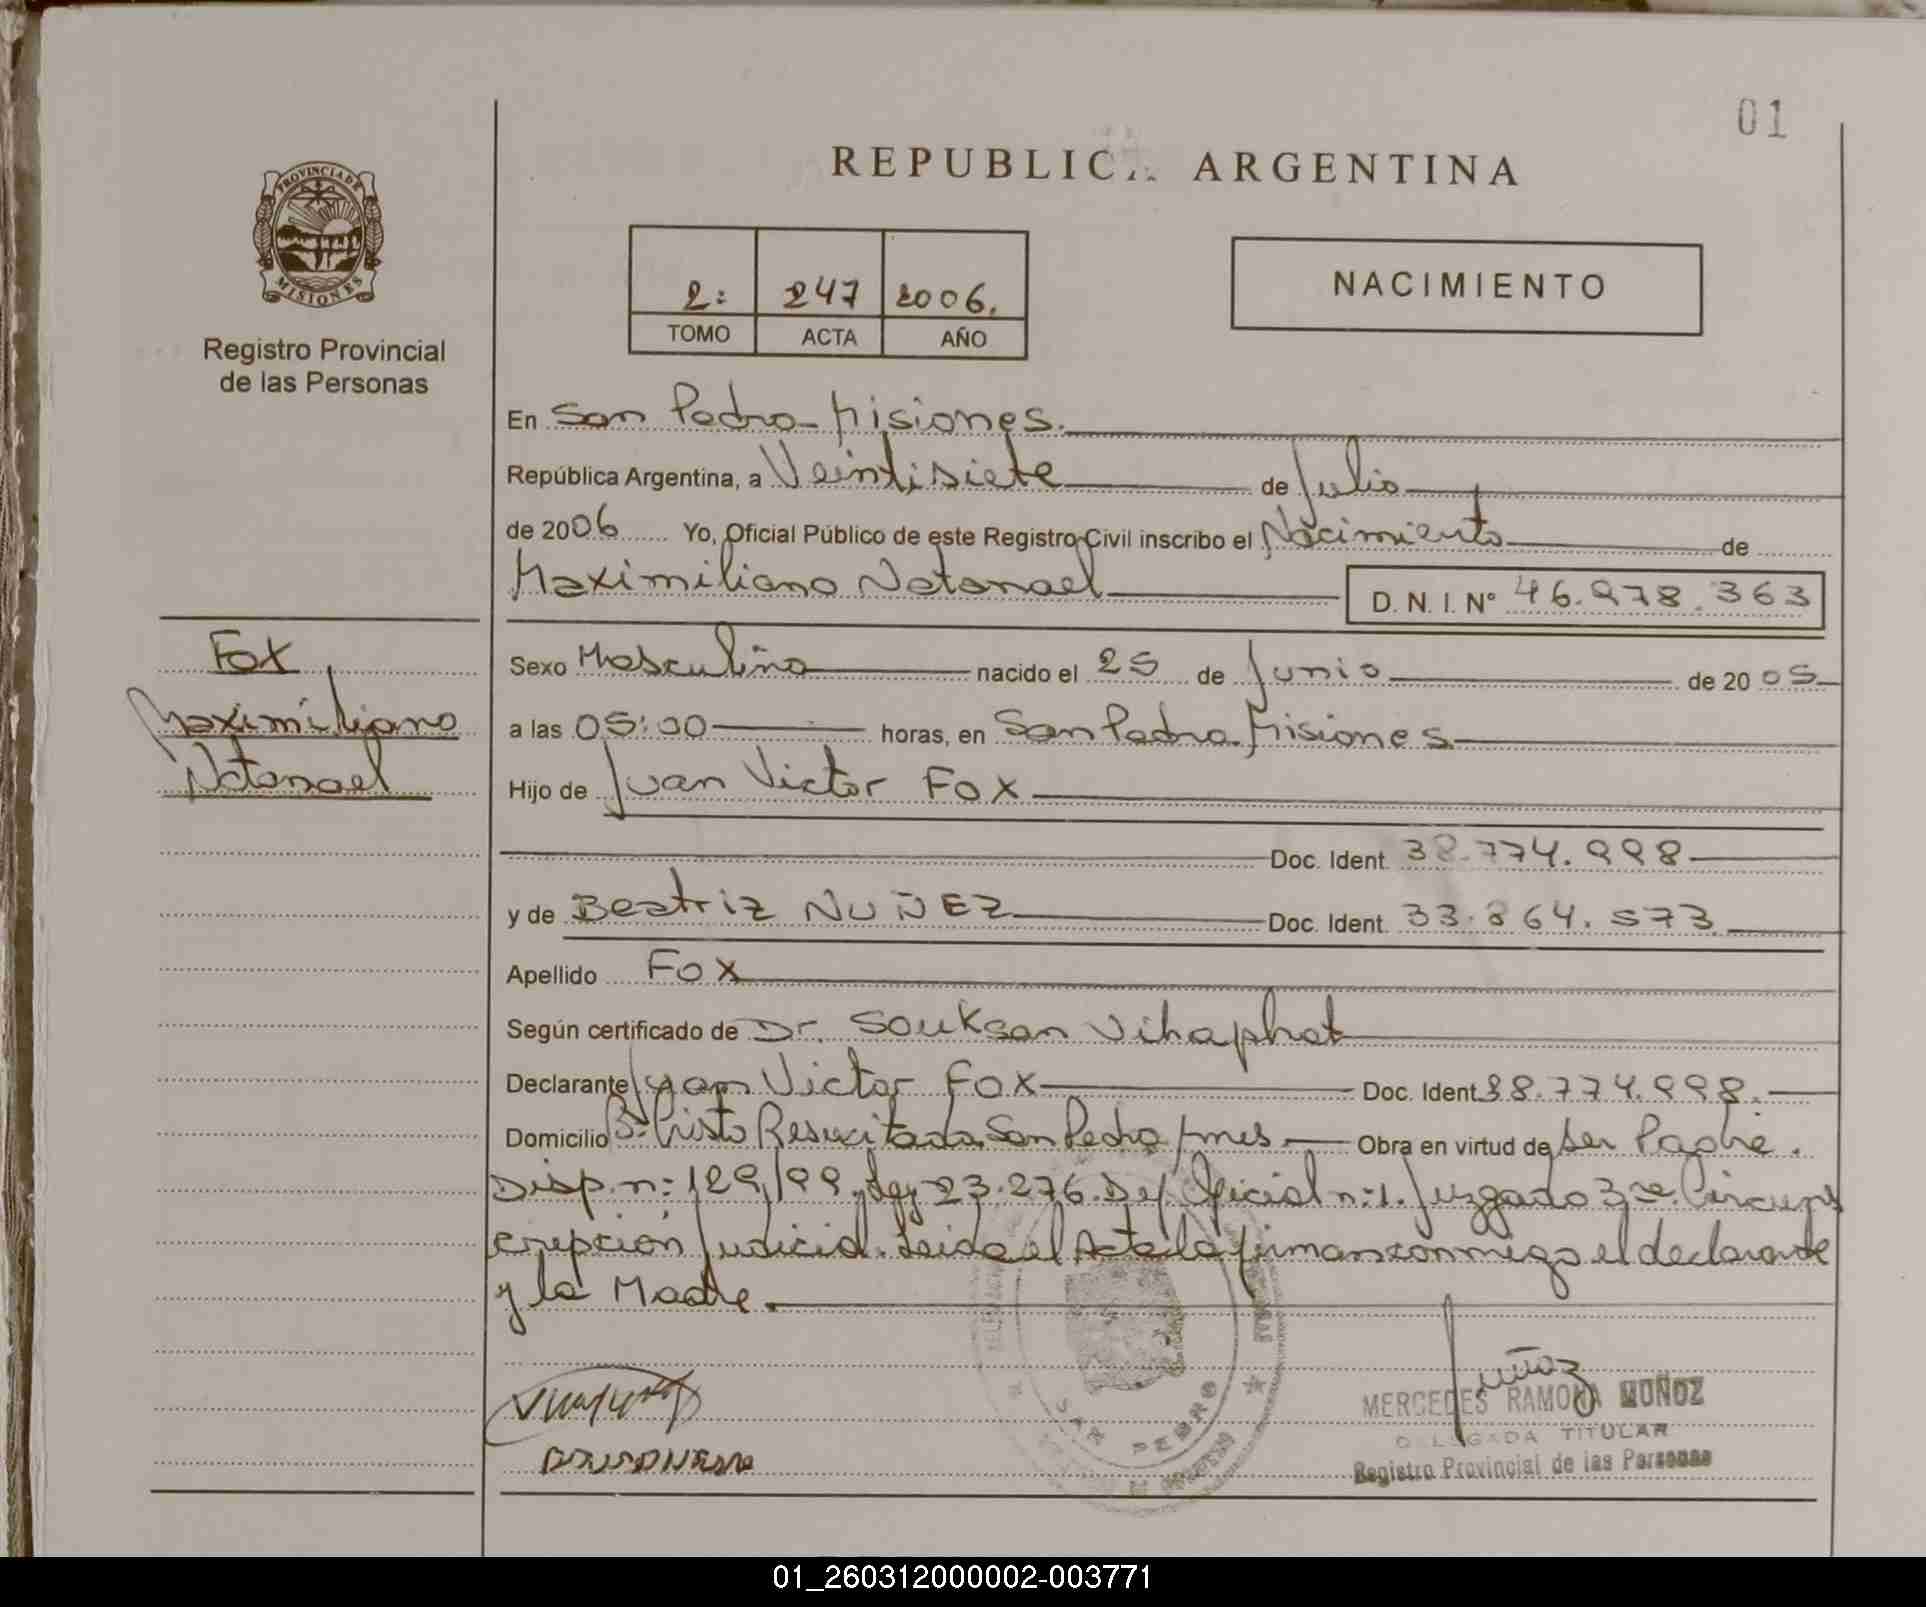 01
REPUBLICA ARGENTINA
PROVINCIA DE
MISIONES
Registro Provincial
de las Personas
2: 247 2006.
TOMO ACTA AÑO
NACIMIENTO
En San Pedro - Misiones.
República Argentina, a Veintisiete de Julio
de 2006 Yo, Oficial Público de este Registro Civil inscribo el Nacimiento de
Maximiliano Natanael D. N. I. N° 46.978.363
Fox
Maximiliano
Natanael
Sexo Masculino nacido el 25 de Junio de 20 05
a las 05:00 horas, en San Pedro. Misiones
Hijo de Juan Victor FOX
Doc. Ident. 38.774.998
y de Beatriz NUÑEZ Doc. Ident. 33.864.573
Apellido FOX
Según certificado de Dr. Souksan Vihaphat
Declarante Juan Victor FOX Doc. Ident. 38.774.998.
Domicilio B° Cristo Resucitado, San Pedro, Mnes Obra en virtud de ser Padre.
Disp. n: 129/99, Ley 23.276. Def Oficial n: 1. Juzgado 3ra. Circuns
cripción Judicial. Leida el Acta la firman conmigo el declarante
y la Madre.
SAN PEDRO
Muñoz
MERCEDES RAMONA MUÑOZ
DELEGADA TITULAR
Registro Provincial de las Personas
01_260312000002-003771